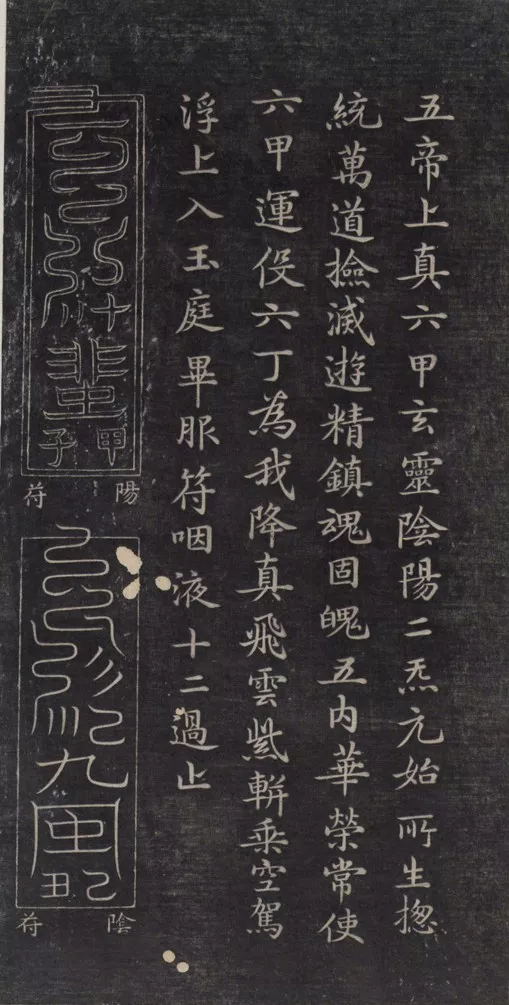 五帝上真六甲玄靈陰陽二炁元始所生揔
統萬道撿滅遊精鎮魂固魄五內華榮常使
六甲運役六丁為我降真飛雲紫軿乘空駕
浮上入玉庭畢服符咽液十二過止
甲子
陽符
九
己丑
陰符